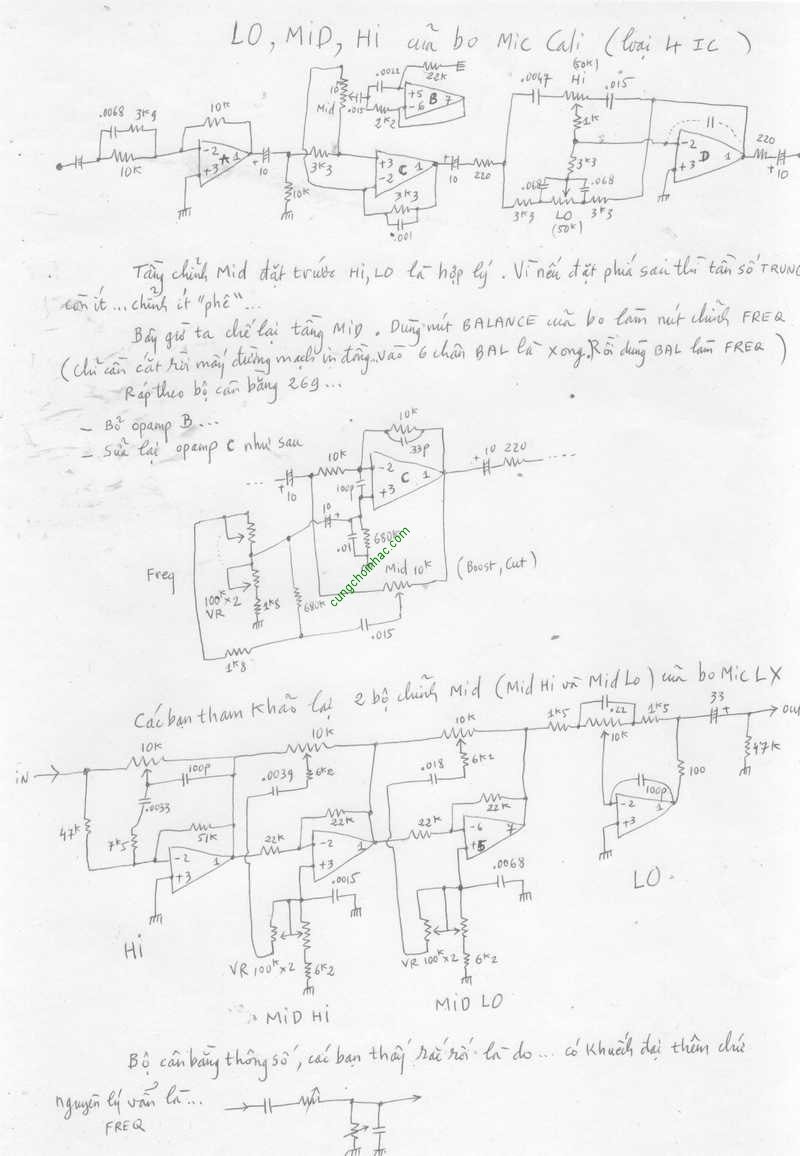 LO, MiD, Hi của bo Mic Cali (loại 4 IC)
.0068 3K9
10K
10K
-2
+3
A 1
+
10
10K
3K3
10
Mid
.015
.0022
22K
E
+5
-6
B 7
2K2
+3
-2
C 1
3K3
.001
+
10
220
.0047
(50K)
Hi
.015
1K
3K3
.068
.068
3K3
LO
(50K)
3K3
11
-2
+3
D 1
220
+
10
Tầng chỉnh Mid đặt trước Hi, LO là hợp lý. Vì nếu đặt phía sau thì tần số TRUNG
còn ít ... chỉnh ít "phê" ...
Bây giờ ta chế lại tầng MiD. Dùng nút BALANCE của bo làm nút chỉnh FREQ
(chỉ cần cắt rời mấy đường mạch in đồng..vào 6 chân BAL là xong. Rồi dùng BAL làm FREQ)
Ráp theo bộ cân bằng 269 ...
- Bỏ opamp B ...
- Sửa lại opamp C như sau
10K
33p
10K
...
+
10
100p
-2
+3
C 1
+ 10 220
....
10 +
.01
680K
Freq
100K x2
VR
1K8
680K
Mid 10K
(Boost, Cut)
.015
1K8
cungchoinhac.com
Các bạn tham khảo lại 2 bộ chỉnh Mid (Mid Hi và Mid Lo) của bo Mic LX
iN
10K
100p
.0033
47K
7K5
51K
-2
+3
1
Hi
10K
.0039
6K2
22K
22K
-2
+3
1
.0015
VR 100K x2
6K2
MiD Hi
10K
.018
6K2
22K
22K
-6
+5
7
.0068
VR 100K x2
6K2
MiD LO
1K5
.22
1K5
10K
100p
-2
+3
1
100
33
+
OUT
47K
LO
Bộ cân bằng thông số, các bạn thấy rắc rối là do ... có khuếch đại thêm chứ
nguyên lý vẫn là ...
FREQ